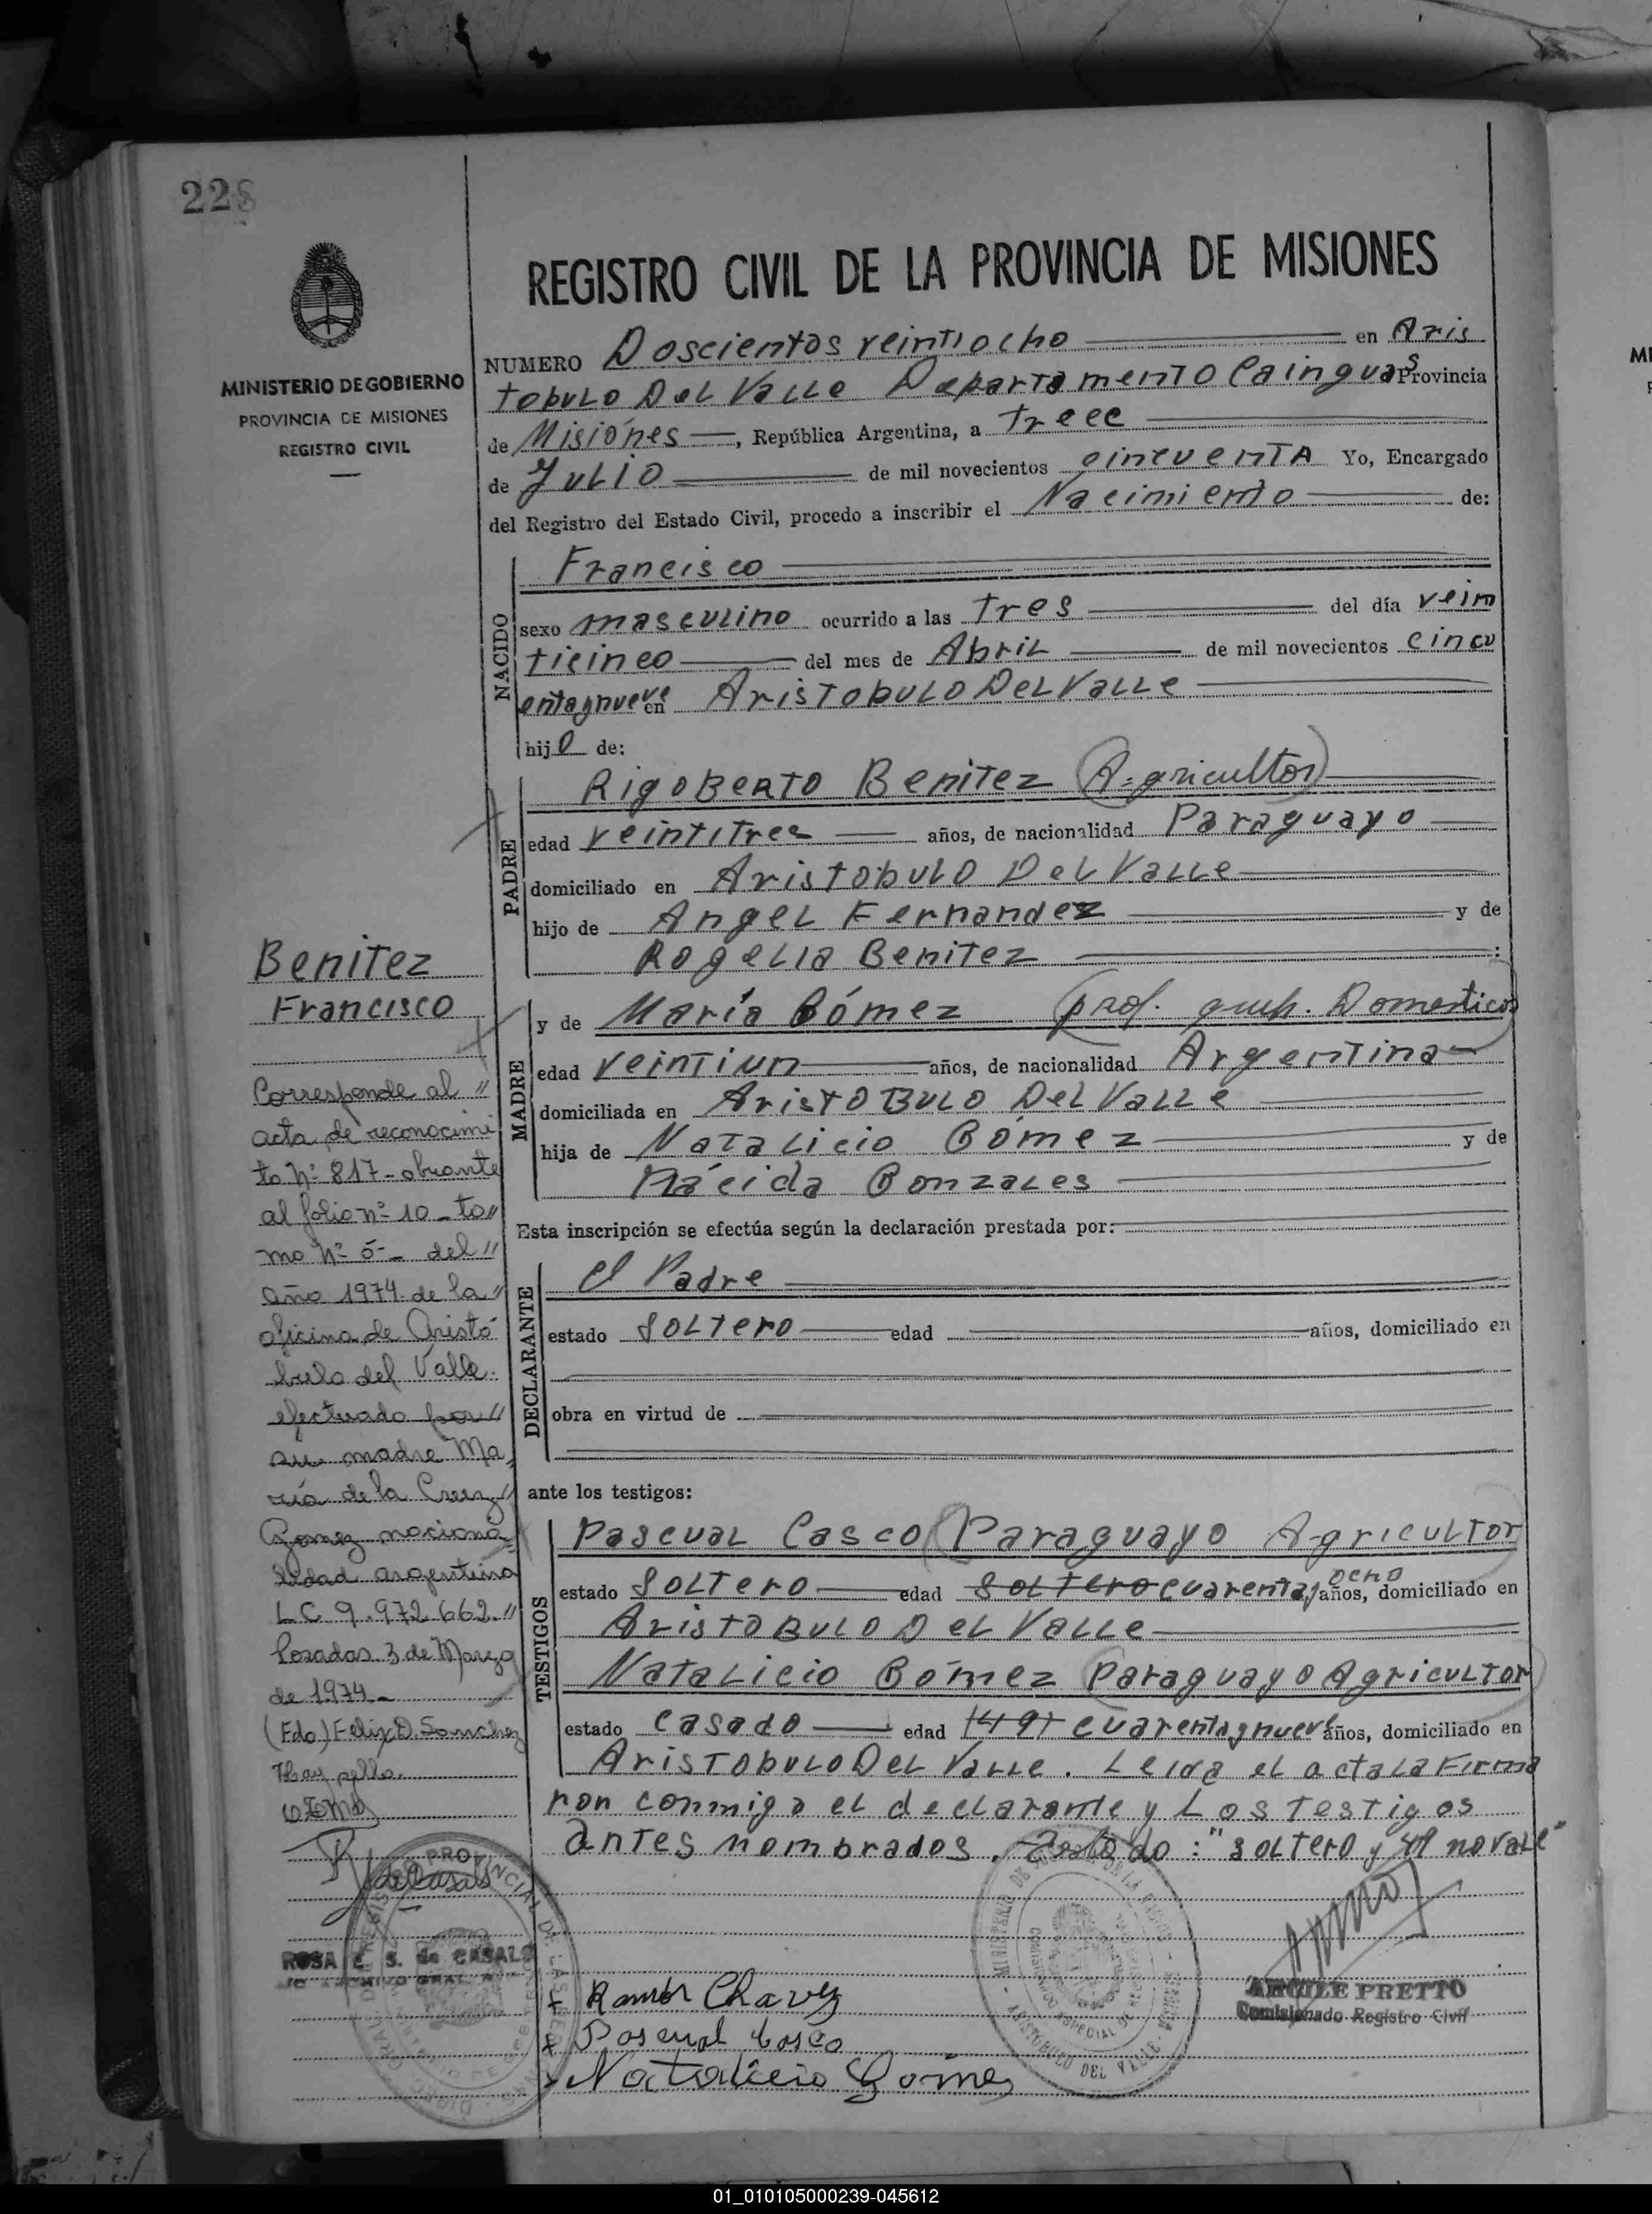 228
MINISTERIO DE GOBIERNO
PROVINCIA DE MISIONES
REGISTRO CIVIL
REGISTRO CIVIL DE LA PROVINCIA DE MISIONES
NUMERO Doscientos veintiocho en Aris
tobulo Del Valle Departamento Cainguas Provincia
de Misiónes, República Argentina, a trece
de Julio de mil novecientos cincuenta Yo, Encargado
del Registro del Estado Civil, procedo a inscribir el Nacimiento de:
NACIDO
Francisco
sexo masculino ocurrido a las tres del día vein
ticinco del mes de Abril de mil novecientos cincu
entaynueve en Aristobulo Del Valle
hijo de:
PADRE
Rigoberto Benitez (Agricultor)
edad veintitres años, de nacionalidad Paraguayo
domiciliado en Aristobulo Del Valle
hijo de Angel Fernandez y de
Rogelia Benitez :
MADRE
y de María Gómez (prof. queh. Domesticos)
edad veintiun años, de nacionalidad Argentina
domiciliada en Aristobulo Del Valle
hija de Natalicio Gómez y de
Plácida Gonzales
Esta inscripción se efectúa según la declaración prestada por:
DECLARANTE
El Padre
estado soltero edad años, domiciliado en
obra en virtud de
ante los testigos:
TESTIGOS
Pascual Casco (Paraguayo Agricultor)
estado soltero edad soltero cuarentayocho años, domiciliado en
Aristobulo Del Valle
Natalicio Gómez (Paraguayo Agricultor)
estado casado edad (49) cuarentaynueve años, domiciliado en
Aristobulo Del Valle. Leida el acta la firma
ron conmigo el declarante y los testigos
antes nombrados. Testado: "soltero y 49 no vale"
Benitez
Francisco
Corresponde al "
acta de reconocimi
to Nº 817- obrante
al folio nº 10 - to"
mo Nº 5- del "
año 1974 de la "
oficina de Aristó
bulo del Valle.
efectuado por "
su madre Ma
ría de la Cruz "
Gomez naciona
lidad argentina
L.C 9.972.662."
Posadas 3 de Marzo
de 1974-
(Fdo) Felix D. Sanchez
Hay sello.
ROSA E. S. de CASALS
Ramón Chavez
Pascual Casco
Natalicio Gómez
ARGILE PRETTO
Comisionado Registro Civil
01_010105000239-045612